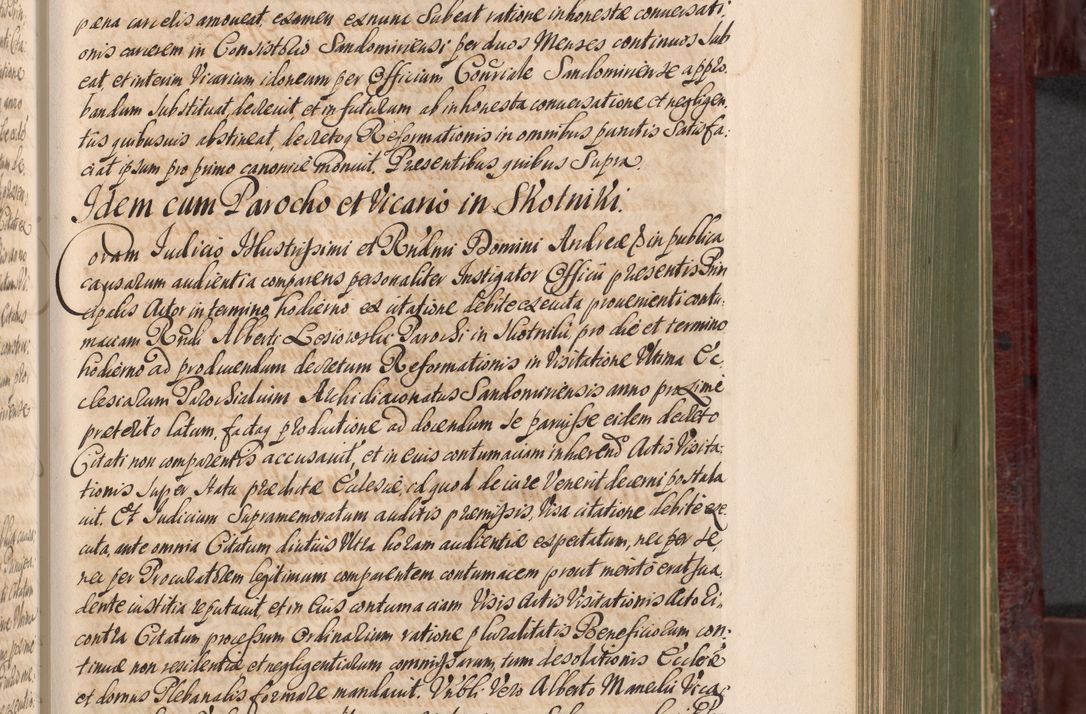 pœna carcelis amoveat, examen ex nunc Subeat ratione inhonestæ conversati
onis carcerem in Consistorio Sandomiriensi per duos Menses continuos Sub
eat, et interim Vicarium idoneum per Officium Consriale Sandomiriense appro
bandum Substituat, decrevit, et in futurum ab inhonesta conversatione et negligen
tiis quibusvis abstineat, decretoq Reformationis in omnibus punctis Satisfa:
ciat ipsum pro primo canonice monuit. Præsentibus quibus Supra.
Idem cum Parocho et Vicario in Skotniki.
Coram Iudicio Illustrissimi et Rndmi Domini Andreæ & in publica
causarum audientia comparens personaliter Instigator Officii præsentis Prin
cipalis Actor in termino hodierno ex citatione debite executa provenienti contu:
maciam Rndi Alberti Lesiowski Parochi in Skotniki, pro die et termino
hodierno ad producendum decretum Reformationis in Visitatione Ultima Ec
clesiarum Parochialium Archidiaconatus Sandomiriensis anno proxime
præterito latum, factaq productione ad docendum Se paruisse eidem decreto
Citati non comparentis accusavit, et in eius contumaciam inhærend Actis Visita
tionis Super Statu prædictæ Ecclesiæ, id quod de iure Venerit decerni postula
vit. Et Iudicium Supramemoratum auditis præmissis, Visa citatione debite exe
cuta, ante omnia Citatum diutius Ultra horam audientiæ expectatum, nec per Se,
nec per Procuratorem legitimum comparentem contumacem prout merito erat Sua
dente iustitia reputavit, et in Eius contumaciam Visis Actis Visitationis Actori
contra Citatum processum Ordinarium ratione pluralitatis Beneficiorum con:
tinuæ non residentiæ et negligentiarum commissarum, tum desolationis Ecclæ
et domus Plebanalis formare mandavit. Vnbli. Vero Alberto Manecki Vica: